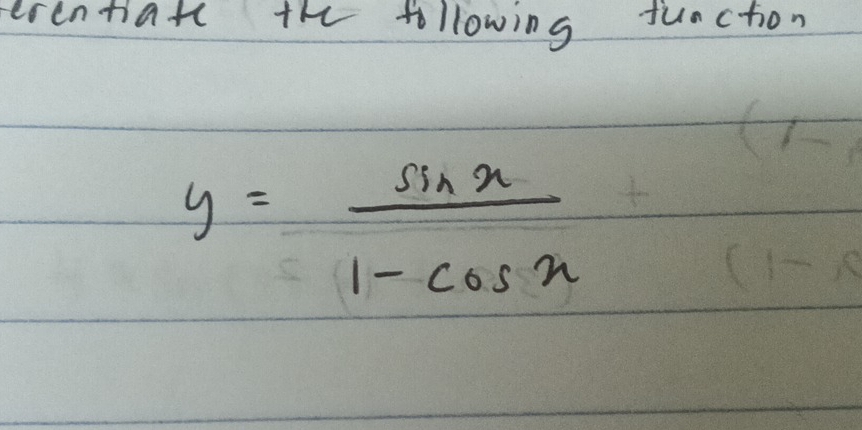 erentiate the following function
y = sin x
1 - cos x